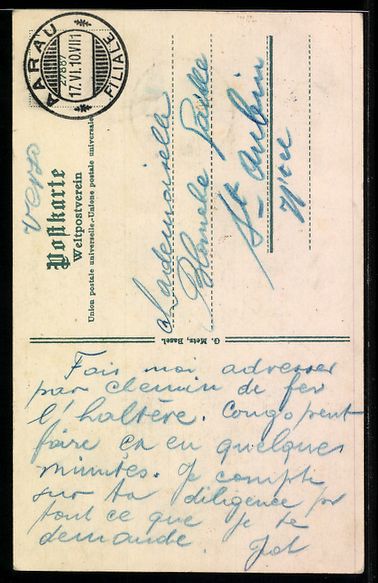 AARAU
17.VI.10.VII1
FILIALE
verso
Postkarte
Weltpostverein
Union postale universelle.-Unione postale universale.
Mademoiselle
Blanche
St Aubin
G. Metz, Basel.
Fais moi adresser
par chemin de fer
l'haltère. Congo peut
faire ça en quelques
minutes. Je compte
sur ta diligence pr
tout ce que je te
demande.